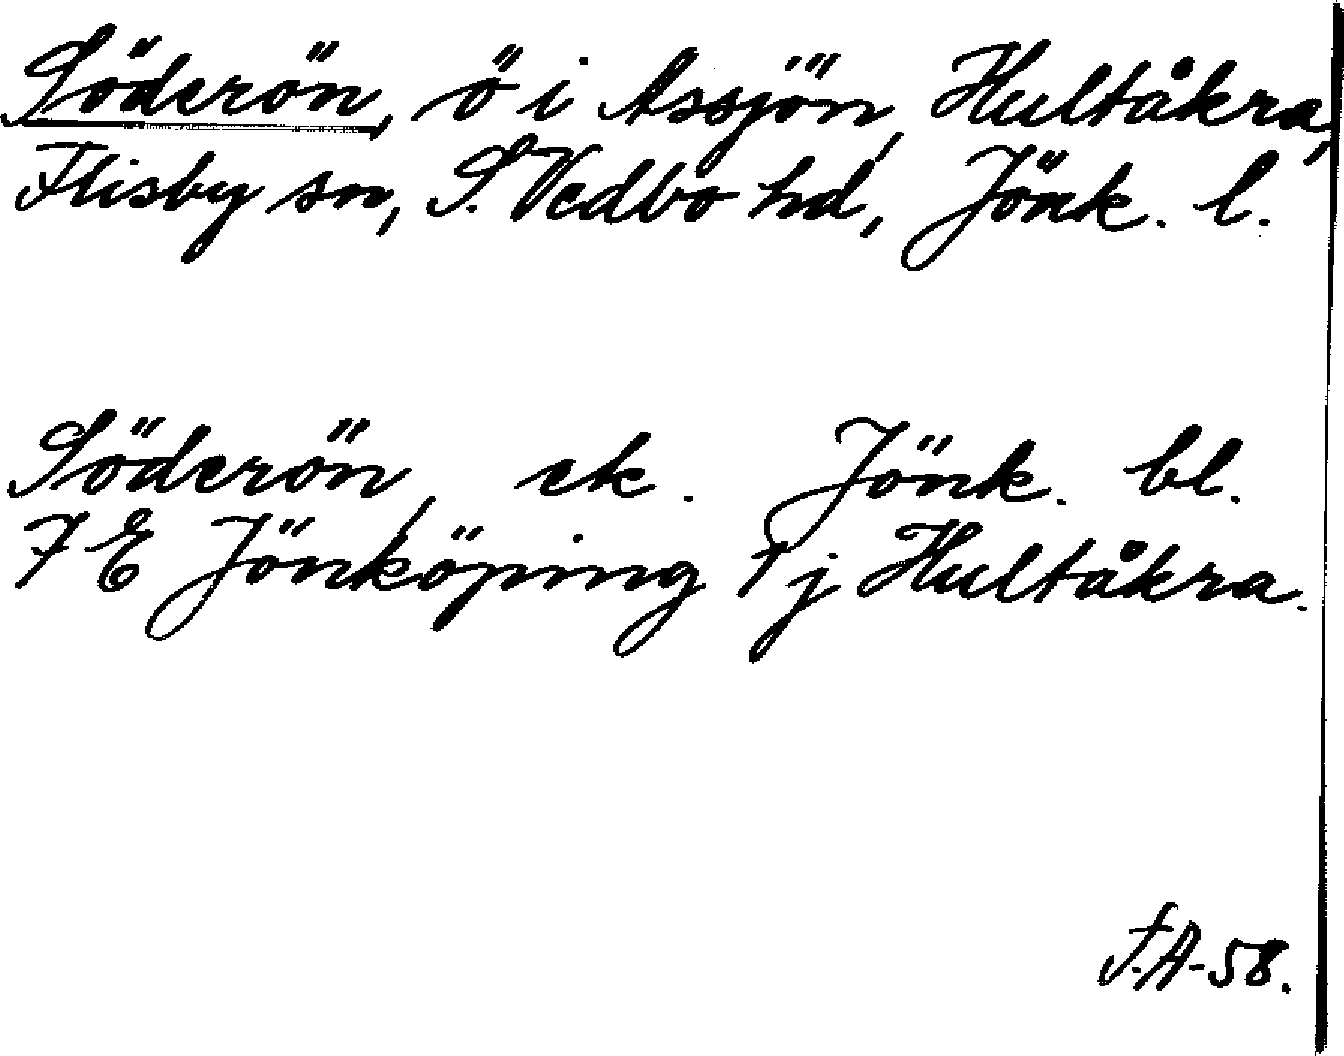 Söderön, ö i Assjön, Hultåkra,
Flisby sn, S. Vedbo hd, Jönk. l.
Söderön, ek. Jönk. bl.
7 E Jönköping 1 j Hultåkra.
F.A-58.